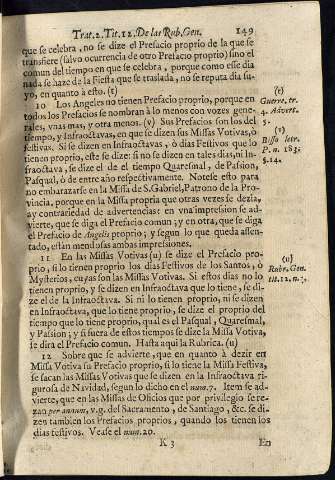 Trat. 2. Tit. 12. De las Rub. Gen. 149
que se celebra, no se dize el Prefacio proprio de la que se
transfiere (salvo ocurrencia de otro Prefacio proprio) sino el
comun del tiempo en que se celebra, porque como esse dia
nada se haze de la Fiesta que se traslada, no se reputa di su-
yo, en quanto à esto. (t)
10 Los Angeles no tienen Prefacio proprio, porque en
todos los Prefacios se nombran à lo menos con vozes gene-
rales, vnas mas, y otra menos. (v) Sus Prefacios son los del
tiempo, y Infraoctavas, en que se dizen sus Missas Votivas, ò
festivas. Si se dizen en Infraoctavas, ò dias Festivos que lo
tienen proprio, este se dize: si no se dizen en tales dias, ni In-
fraoctava, se dize el de el tiempo Quaresmal, de Passion,
Pasqual, ò de entre año respectivamente. Notese esto para
no embarazarse en la Missa de S. Gabriel, Patrono de la Pro-
vincia, porque en la Missa propria que otras vezes se dezia,
ay contrariedad de advertencias: en vna impression se ad-
vierte, que se diga el Prefacio comun, y en otra, que se diga
el Prefacio de Angelis proprio; y segun lo que queda assen-
tado, estàn mendosas ambas impressiones.
11 En las Missas Votivas (u) se dize el Prefacio pro-
prio, si lo tienen proprio los dias Festivos de los Santos, ò
Mysterios, cuyas son las Missas Votivas. Si estos dias no lo
tienen proprio, y se dizen en Infraoctava que lo tiene, se di-
ze el de la Infraoctava. Si ni lo tienen proprio, ni se dizen
en Infraoctava, que lo tiene proprio, se dize el proprio del
tiempo que lo tiene proprio, qual es el Pasqual, Quaresmal,
y Passion; y si fuera de estos tiempos se dize la Missa Votiva,
se dira el Prefacio comun. Hasta aqui la Rubrica. (u)
12 Sobre que se advierte, que en quanto à dezir en
Missa Votiva su Prefacio proprio, si lo tiene la Missa Festiva,
se sacan las Missas Votivas que se dizen en la Infraoctava ri-
gurosa de Navidad, segun lo dicho en el num. 7. Item se ad-
vierte, que en las Missas de Oficios que por privilegio se re-
zan per annum, v.g. del Sacramento, de Santiago, &c. se di-
zen tambien los Prefacios proprios, quando los tienen los
dias festivos. Vease el num. 20.
K 3 En
(t)
Guerre, tr.
4. Advert.
Bisso letr.
P. n. 183.
§. 14.
(u)
Rubr. Gen.
tit. 12. n.